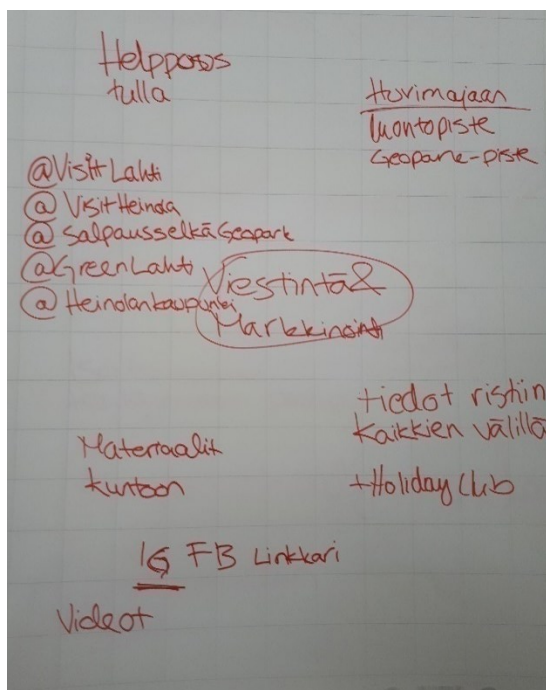 Helppous
tulla
Huvimajaan
luontopiste
Geopark-piste
@Visit Lahti
@ Visit Heinola
@ Salpausselkä Geopark
@GreenLahti
@ Heinolankaupunki
Viestintä &
Markkinointi
tiedot ristiin
kaikkien välillä
+Holiday Club
Materiaalit
kuntoon
IG FB Linkkari
Videot